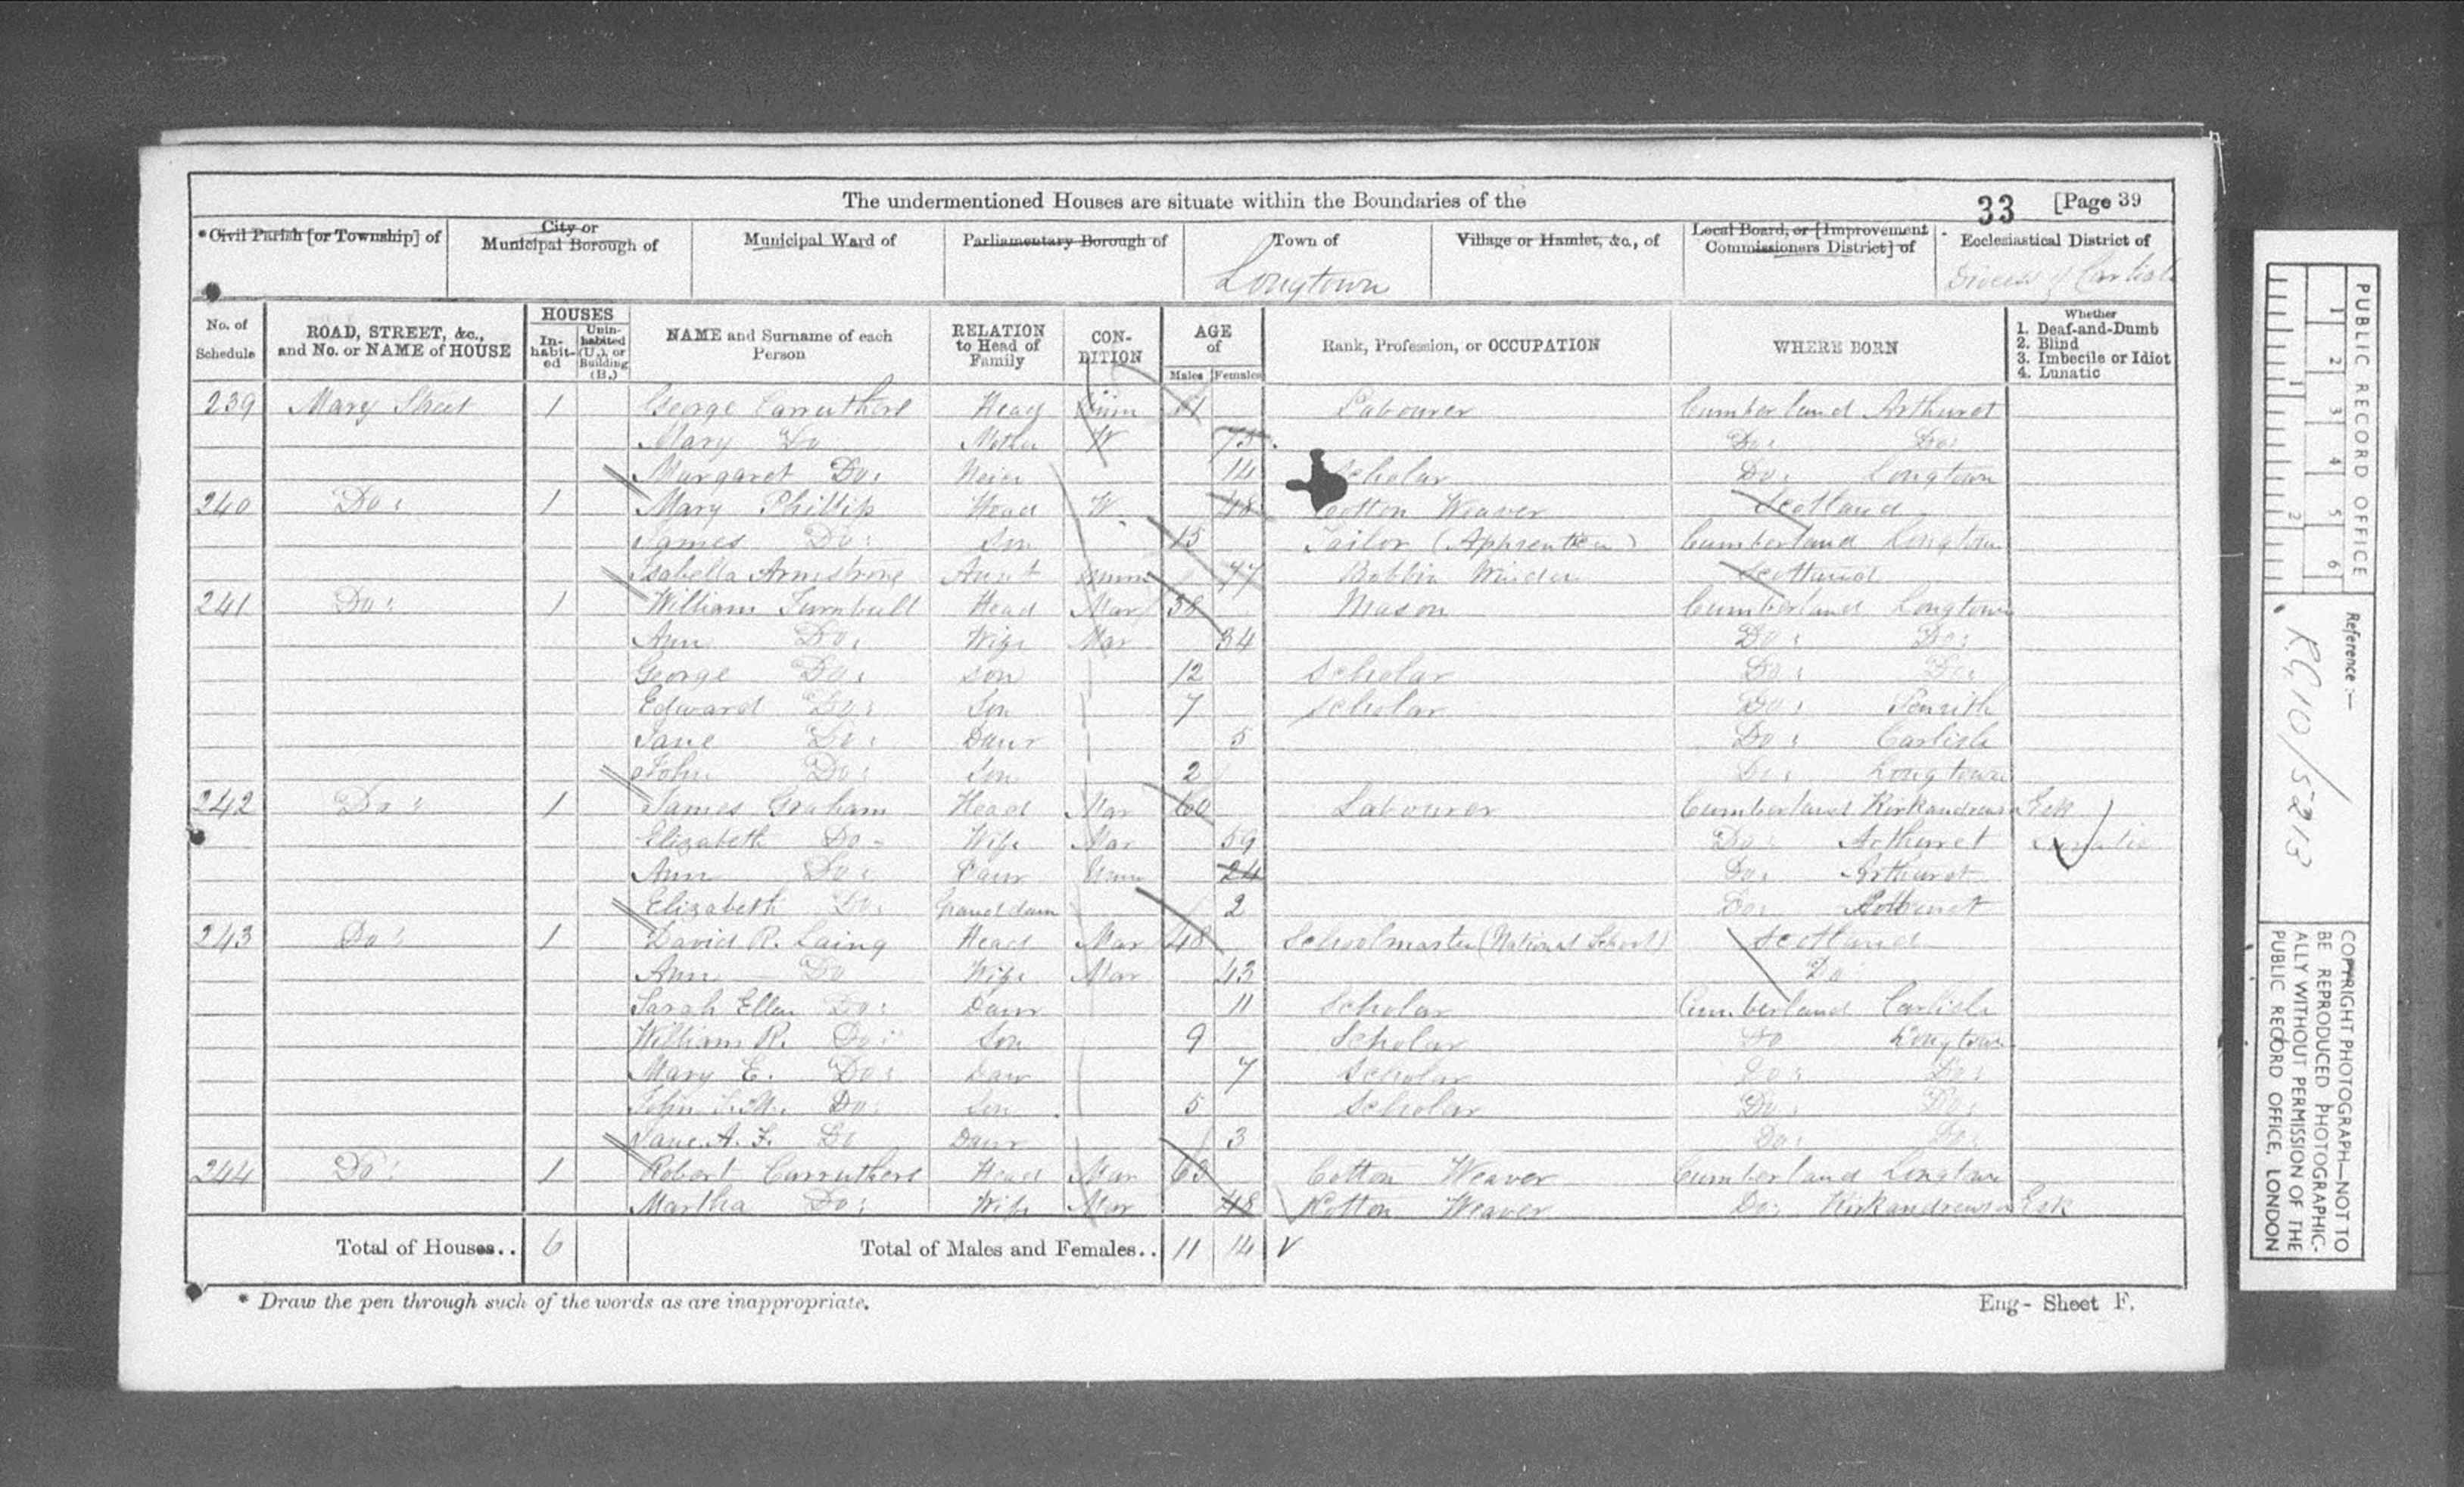 The undermentioned Houses are situate within the Boundaries of the 33 [Page 39
*Civil Parish [or Township] of City or Municipal Borough of Municipal Ward of Parliamentary Borough of Town of Village or Hamlet, &c., of Local Board, or [Improvement Commissioners District] of Ecclesiastical District of
Longtown Diocess of Carlisle
No. of Schedule ROAD, STREET, &c., and No. or NAME of HOUSE HOUSES In-habit-ed Unin-habited (U.), or Building (B.) NAME and Surname of each Person RELATION to Head of Family CON-DITION AGE of Males Females Rank, Profession, or OCCUPATION WHERE BORN Whether 1. Deaf-and-Dumb 2. Blind 3. Imbecile or Idiot 4. Lunatic
239 Mary Street 1 George Carruthers Head Unm Labourer Cumberland Arthuret
Mary Do Mother W 73 Do: Do:
Margaret Do: Neice 14 Scholar Do: Longtown
240 Do: 1 Mary Phillips Head W 48 Cotton Weaver Scotland
James Do: Son 15 Tailor (Apprentice) Cumberland Longtown
Isabella Armstrong Aunt Unm 77 Bobbin Winder Scotland
241 Do: 1 William Turnbull Head Mar 38 Mason Cumberland Longtown
Ann Do: Wife Mar 34 Do: Do:
George Do: Son 12 Scholar Do: Do:
Edward Do: Son 7 Scholar Do: Penrith
Jane Do: Daur 5 Do: Carlisle
John Do: Son 2 Do: Longtown
242 Do: 1 James Graham Head Mar 60 Labourer Cumberland Kirkandrews Esk
Elizabeth Do: Wife Mar 59 Do: Arthuret Lunatic
Ann Do: Daur Unm 24 Do: Arthuret
Elizabeth Do: Grand daur 2 Do: Arthuret
243 Do: 1 David R. Laing Head Mar 48 Schoolmaster (National School) Scotland
Ann Do Wife Mar 43 Do
Sarah Ellen Do: Daur 11 Scholar Cumberland Carlisle
William R. Do: Son 9 Scholar Do Longtown
Mary E. Do: Daur 7 Scholar Do: Do:
John Do: Son 5 Scholar Do: Do:
Jane A. F. Do Daur 3 Do: Do:
244 Do: 1 Robert Carruthers Head Mar 63 Cotton Weaver Cumberland Longtown
Martha Do: Wife Mar 48 Cotton Weaver Do: Kirkandrews Esk
Total of Houses.. 6 Total of Males and Females.. 11 14
* Draw the pen through such of the words as are inappropriate.
Eng- Sheet F.
PUBLIC RECORD OFFICE
1 2 3 4 5 6
1 2
Reference:-
R.G. 10/5213
COPYRIGHT PHOTOGRAPH—NOT TO
BE REPRODUCED PHOTOGRAPHIC-
ALLY WITHOUT PERMISSION OF THE
PUBLIC RECORD OFFICE, LONDON